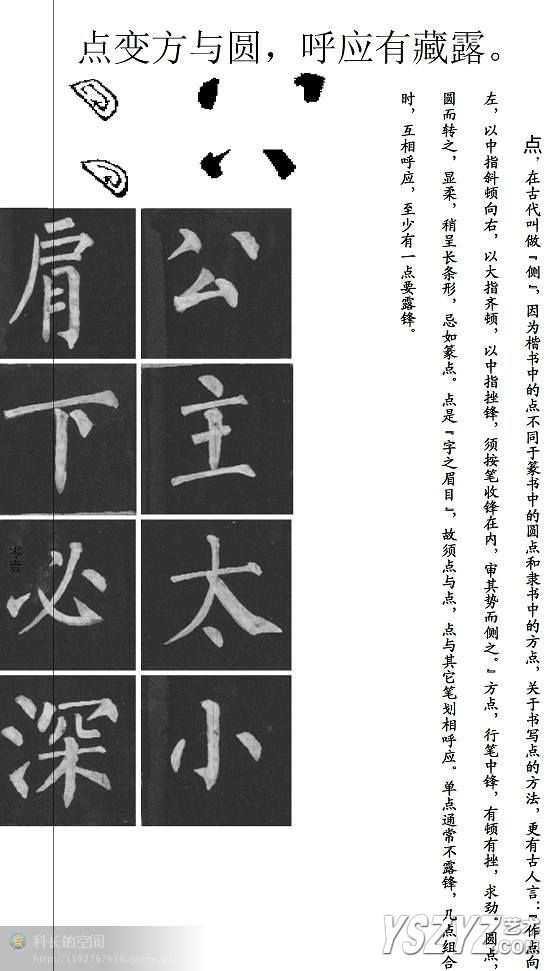 点变方与圆，呼应有藏露。
点，在古代叫做『侧』，因为楷书中的点不同于篆书中的圆点和隶书中的方点，关于书写点的方法，更有古人言：『作点向
左，以中指斜顿向右，以大指齐顿，以中指挫锋，须按笔收锋在内，审其势而侧之。』方点，行笔中锋，有顿有挫，求劲，圆点，
圆而转之，显柔，稍呈长条形，忌如篆点。点是『字之眉目』，故须点与点，点与其它笔划相呼应。单点通常不露锋，几点组合
时，互相呼应，至少有一点要露锋。
公
主
太
小
肩
下
必
深
零壹
科长的空间
YSZYZ艺术